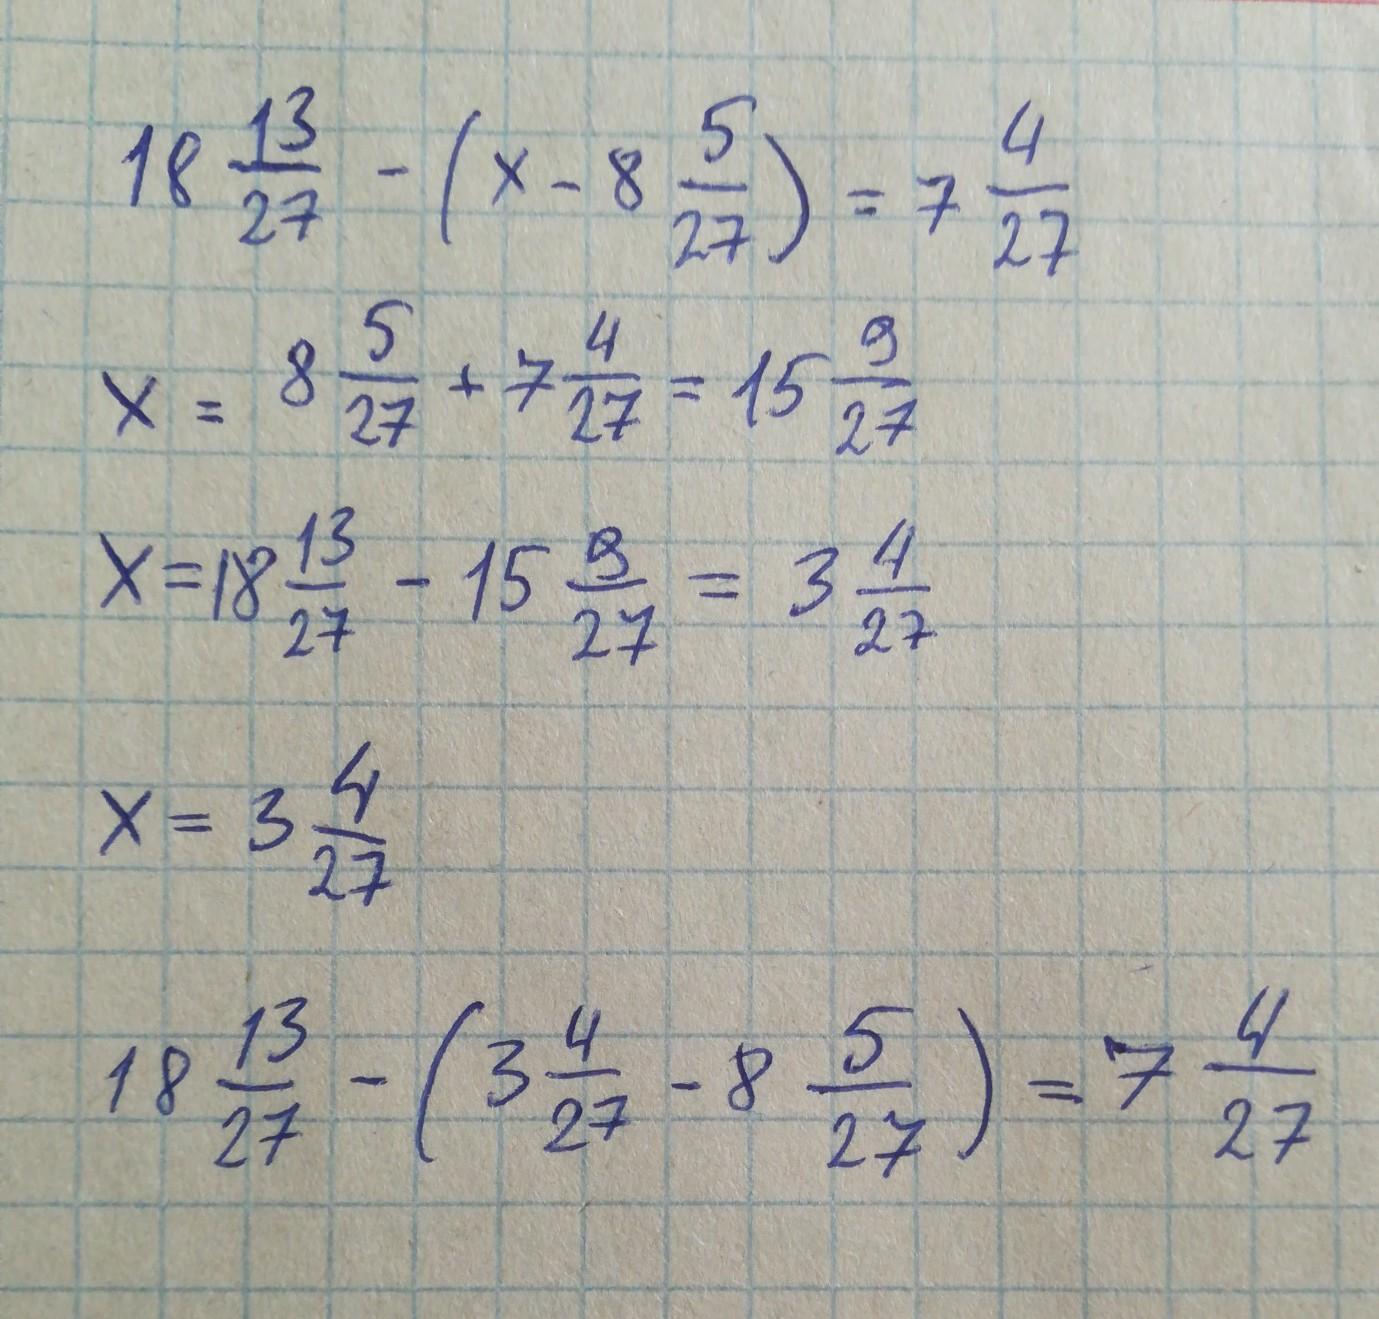 18 13/27 - (x - 8 5/27) = 7 4/27
x = 8 5/27 + 7 4/27 = 15 9/27
x = 18 13/27 - 15 9/27 = 3 4/27
x = 3 4/27
18 13/27 - (3 4/27 - 8 5/27) = 7 4/27